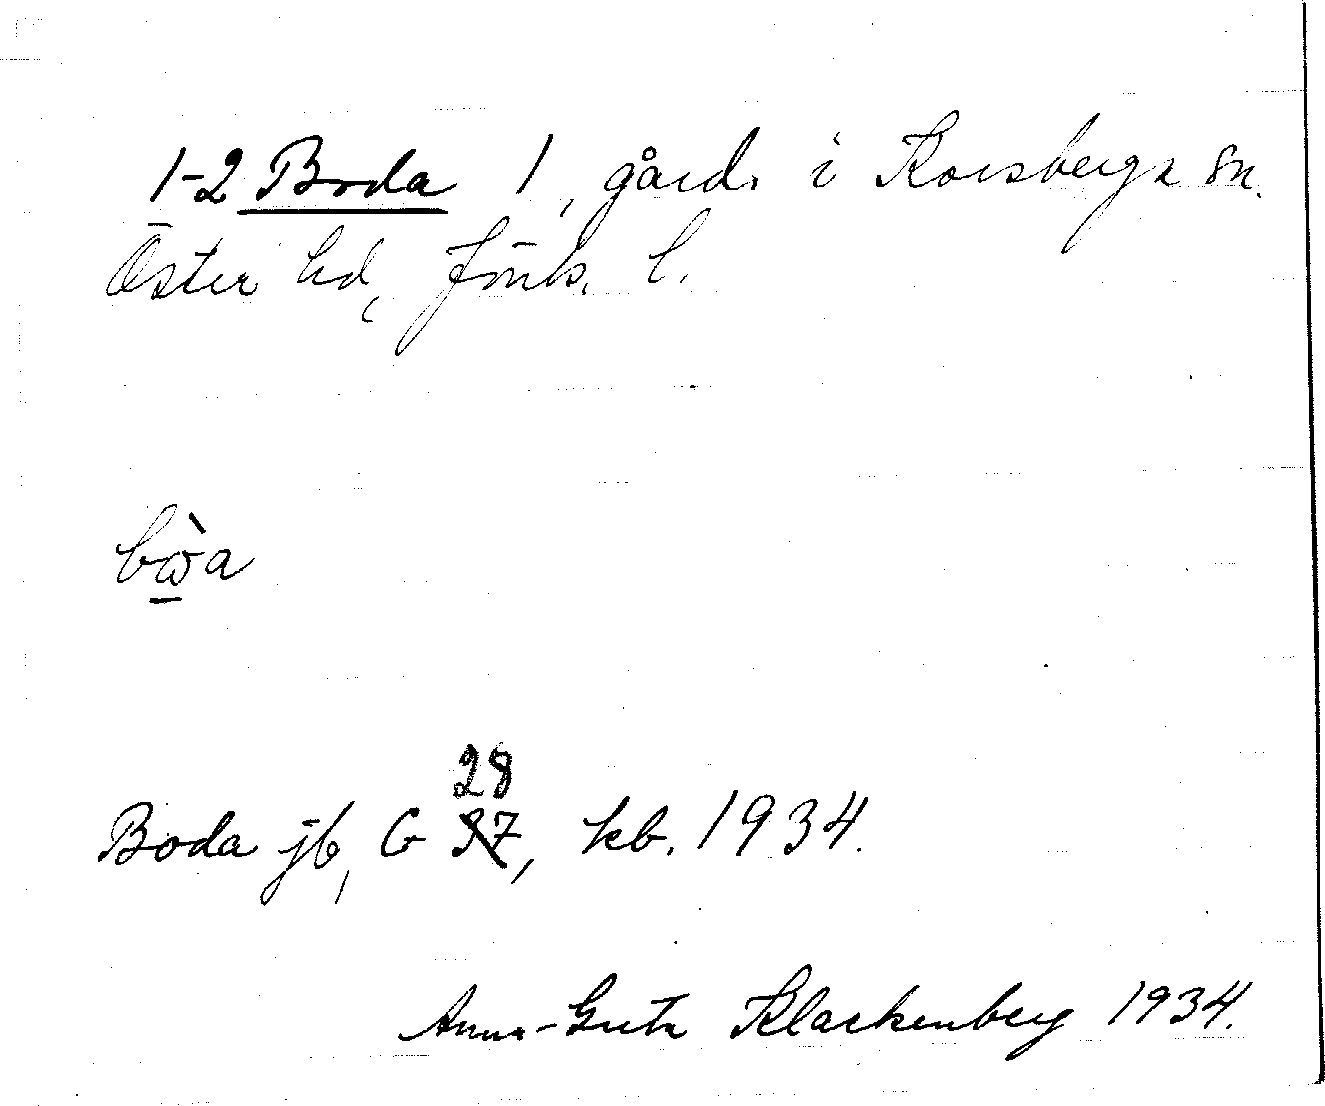 1-2 Boda 1, gård i Korsberga sn.
Öster hd, Jönk. l.
bὼa
28
Boda jb, G 37, kb. 1934.
Anna-Greta Klackenberg 1934.